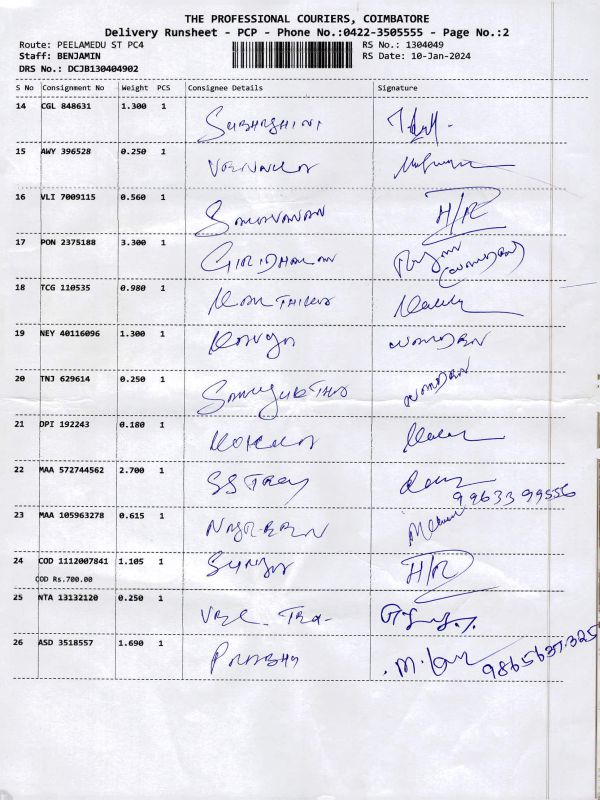 THE PROFESSIONAL COURIERS, COIMBATORE
Delivery Runsheet - PCP - Phone No.:0422-3505555 - Page No.:2
Route: PEELAMEDU ST PC4 RS No.: 1304049
Staff: BENJAMIN RS Date: 10-Jan-2024
DRS No.: DCJB130404902
S No Consignment No Weight PCS Consignee Details Signature
14 CGL 848631 1.300 1 SUBHASHINI
15 AWY 396528 0.250 1
16 VLI 7009115 0.560 1 SARAVANAN H/R
17 PON 2375188 3.300 1 GIRIDHARAN
18 TCG 110535 0.980 1 KARTHIKA
19 NEY 40116096 1.300 1 KAVYA
20 TNJ 629614 0.250 1 SAMYUKTHA
21 DPI 192243 0.180 1 KOKILA
22 MAA 572744562 2.700 1 SS TREY
99633 99556
23 MAA 105963278 0.615 1 NASREEN
24 COD 1112007841 1.105 1 SURYA H/R
COD Rs.700.00
25 NTA 13132120 0.250 1 VBC TRA-
26 ASD 3518557 1.690 1 PRABHU